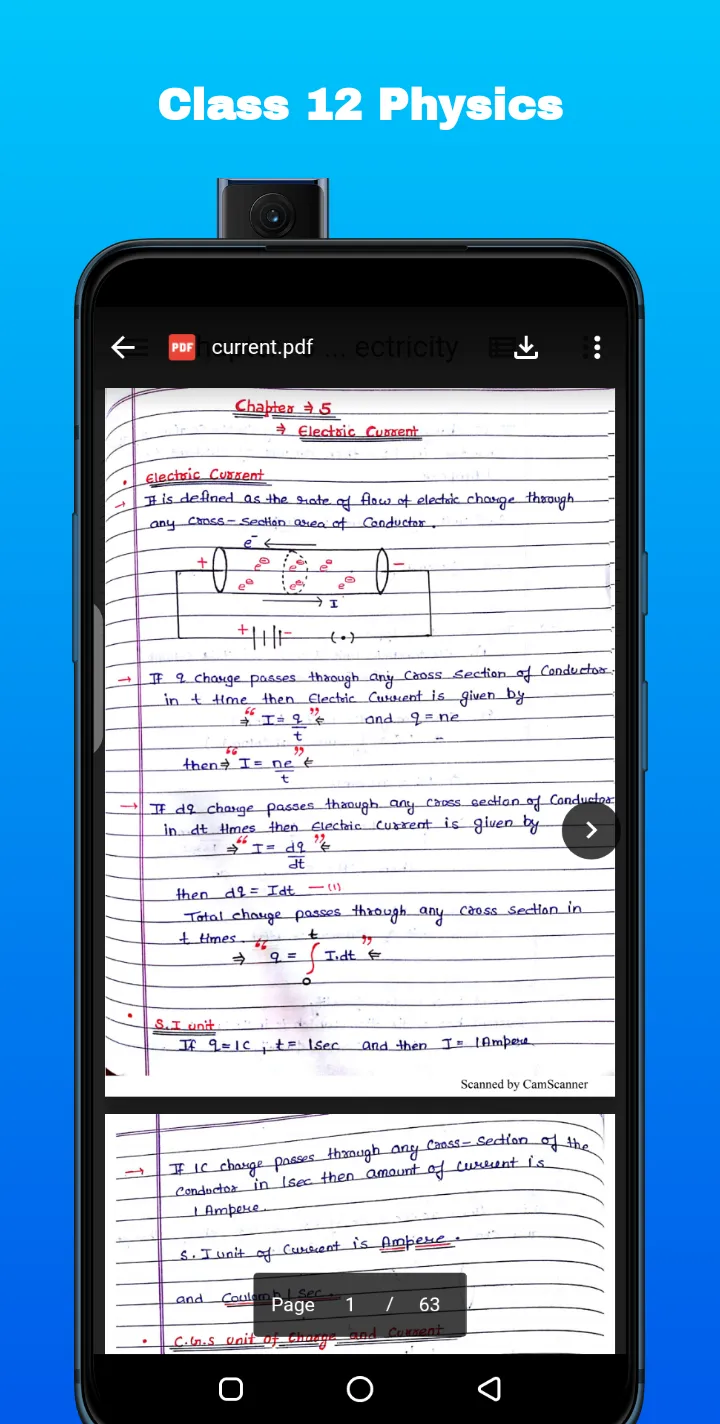 Class 12 Physics
PDF current.pdf ectricity
Chapter ⇒ 5
⇒ Electric Current
• Electric Current
→ It is defined as the rate of flow of electric charge through
any cross-section area of Conductor.
e⁻ ←
+ e⊖ e⊖ e⊖ −
e⊖ e⊖ e⊖
→ I
+ − (•)
→ If q charge passes through any Cross Section of Conductor
in t time then Electric Current is given by
⇒ “ I = q/t ” ⇐ and q = ne
then ⇒ “ I = ne/t ” ⇐
→ If dq charge passes through any cross section of Conductor
in dt times then Electric Current is given by
⇒ “ I = dq/dt ” ⇐
then dq = Idt — (1)
Total charge passes through any cross section in
t times.
⇒ “ q = ∫₀ᵗ I.dt ” ⇐
• S.I unit
If q = 1C , t = 1sec and then I = 1Ampere.
Scanned by CamScanner
→ If 1C charge passes through any Cross-Section of the
Conductor in 1sec then amount of current is
1 Ampere.
S.I unit of Current is Ampere.
and Coulomb / sec.
Page 1 / 63
• C.G.S unit of Charge and Current